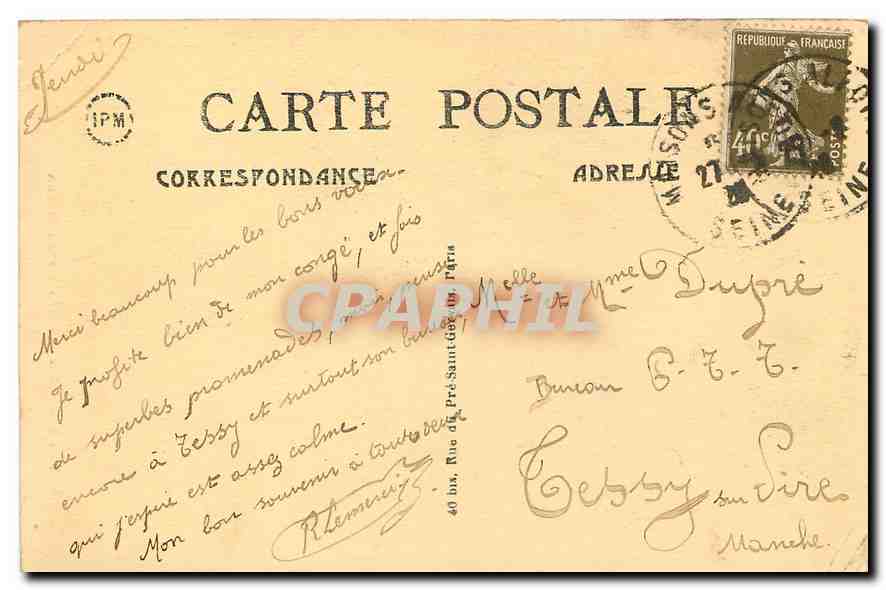 Jeudi
IPM
CARTE POSTALE
CORRESPONDANCE
ADRESSE
RÉPUBLIQUE FRANÇAISE
40c
POSTES
MAISONS ALFORT
27
SEINE
Merci beaucoup pour les bons vœux.
Je profite bien de mon congé, et fais
de superbes promenades, mais pense
encore à Tessy et surtout son bureau,
qui j'espère est assez calme.
Mon bon souvenir à toutes deux
RLemercier
40 bis, Rue du Pré-Saint-Gervais, Paris
CPAPHIL
Melle et Mme Dupré
Bureau P.T.T.
Tessy sur Vire
Manche.